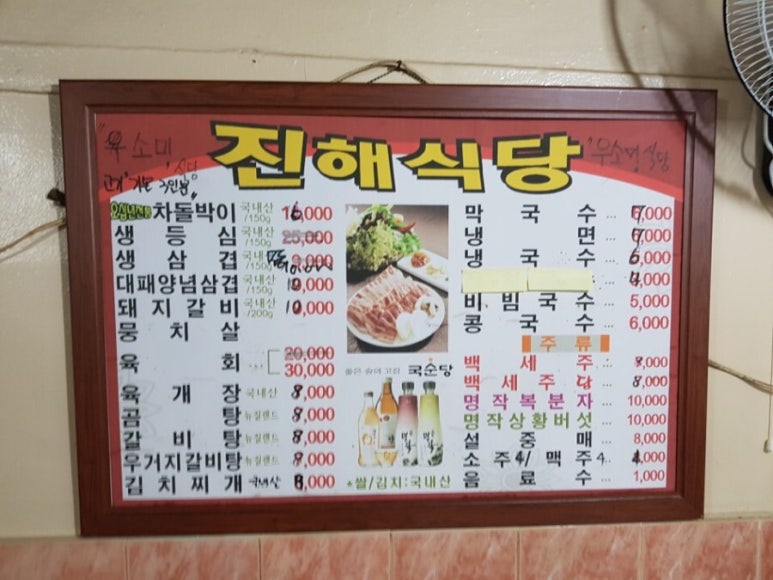 진해식당
소머
식당
오십년전통 차돌박이 국내산/150g 16,000
생등심 국내산/150g 25,000
생삼겹 국내산/150g
대패양념삼겹 국내산/150g 10,000
돼지갈비 국내산/200g 10,000
뭉치살
육회 ... 20,000
30,000
육개장 국내산 8,000
곰탕 뉴질랜드 8,000
갈비탕 뉴질랜드 8,000
우거지갈비탕 뉴질랜드 8,000
김치찌개 국내산 8,000
좋은 술의 고집 국순당
*쌀/김치:국내산
막국수 ... 7,000
냉면 ... 7,000
냉국수 ... 6,000
4,000
비빔국수 ... 5,000
콩국수 ... 6,000
주류
백세주 ... 8,000
백세주당 ... 8,000
명작복분자 ... 10,000
명작상황버섯 ... 10,000
설중매 ... 8,000
소주4/맥주4 ... 4,000
음료수 ... 1,000